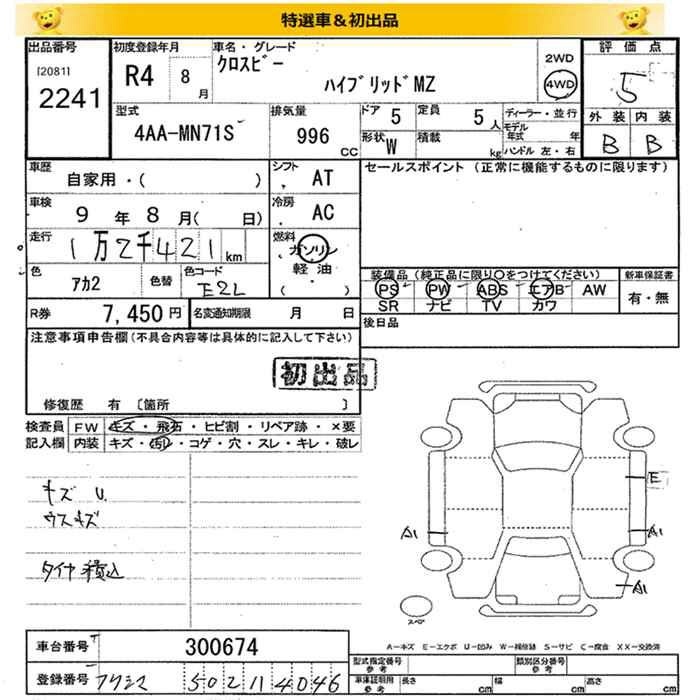 特選車&初出品
出品番号
[2081]
2241
初度登録年月
R4 8月
車名・グレード
クロスビー
ハイブリッドMZ
2WD
4WD
評価点
5
外装 内装
B B
型式
4AA-MN71S
排気量
996 CC
ドア 5
定員 5人
形状 W
積載 kg
ディーラー・並行
モデル年式 年
ハンドル 左・右
車歴
自家用・( )
シフト
AT
セールスポイント (正常に機能するものに限ります)
車検
9年8月( 日)
冷房
AC
走行
1万2千421km
燃料
ガソリン
軽油
( )
色
アカ2
色替
色コード
E2L
装備品 (純正品に限り○をつけてください)
PS PW ABS エアB AW
SR ナビ TV カワ
新車保証書
有・無
R券 7,450円
名変通知期限 月 日
後日品
注意事項申告欄(不具合内容等は具体的に記入して下さい)
初出品
修復歴 有 〔箇所 〕
検査員記入欄
FW キズ・飛石・ヒビ割・リペア跡・×要
内装 キズ・汚レ・コゲ・穴・スレ・キレ・破レ
キズ U.
ウスキズ
タイヤ積込
E
A1
A1
A1
スペア
A-キズ E-エクボ U-凹み W-補修跡 S-サビ C-腐食 XX-交換済
車台番号 300674
登録番号
502 1 1 4046
型式指定番号 参考
類別区分番号 参考
車庫証明用 参考
長さ cm 幅 cm 高さ cm